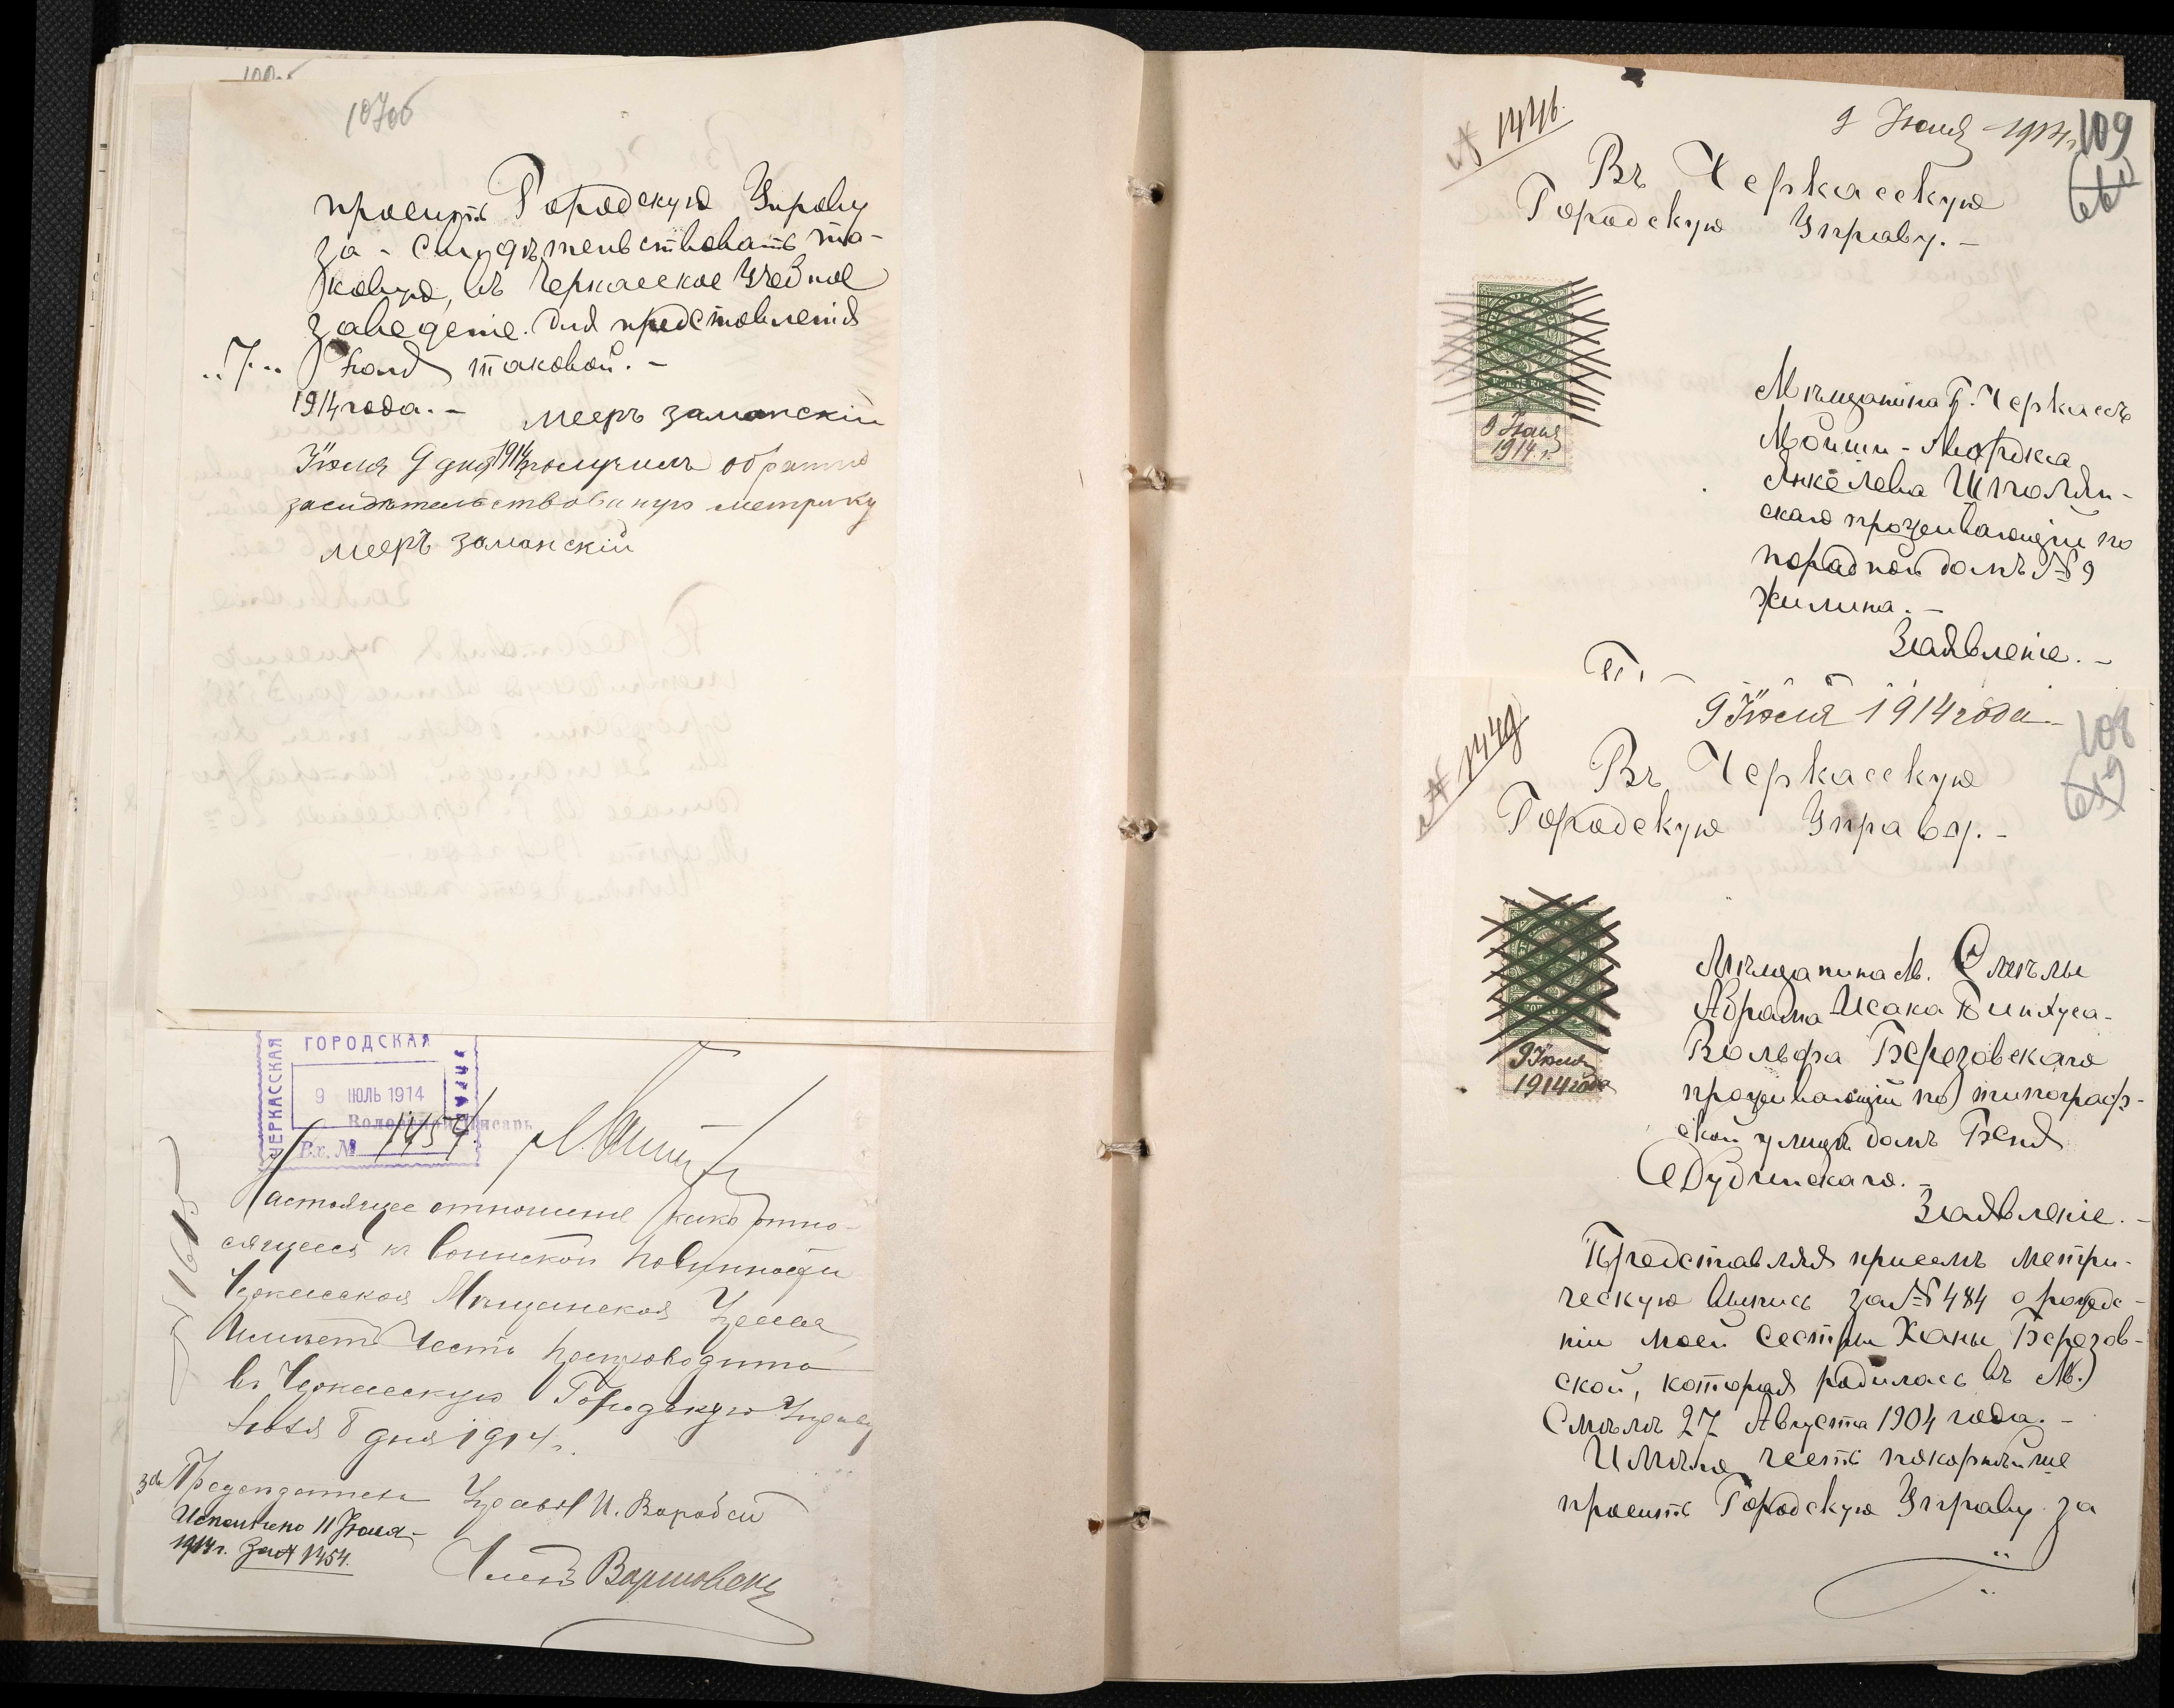 107об
проситъ Городскую Управу
за-свидѣтельствовать та-
ковую, въ Черкасское Учебное
заведеніе. для представленія
"7" Іюля таковой.-
1914 года.-
Мееръ Заманскій
Іюля 9 дня 1914 получилъ обратно
засидѣтельствованую метрику
Мееръ Заманскій
ЧЕРКАССКАЯ
ГОРОДСКАЯ
УПРАВА
9 ІЮЛЬ 1914
Волостной Писарь
Вх. №
Настоящее отношеніе какъ отно-
сящееся къ воинской повинности
Черкасская Мѣщанская Управа
имѣетъ честь препроводить
въ Черкасскую Городскую Управу
Іюля 8 дня 1914 г.
за Предсѣдателя Управы И. Воробей
Исполнено 11 Іюля
1914 г. за № 1454.
Членъ Варшавскій
№ 1446.
9 Іюля 1914 г.
109
Въ Черкасскую
Городскую Управу.-
9 Іюля
1914 г.
Мѣщанина Г. Черкассъ
Мойши-Мордка
Янкелева Шполян-
скаго проживающій по
народной домъ № 9
Жилина.-
Заявленіе.-
9 Іюля 1914 года
№ 1449
108
Въ Черкасскую
Городскую Управу.-
9 Іюля
1914 года
Мѣщанина М. Смѣлы
Абрама Исака Пинхуса-
Вольфа Березовскаго
проживающій по типограф-
ской улицѣ домъ Беня
Сдудинскаго.-
Заявленіе.-
Представляя присемъ метри-
ческую выпись за № 484 о рожде-
ніи моей сестры Ханы Березов-
ской, которая родилась въ М.
Смѣлѣ 27 Августа 1904 года.-
Имѣю честь покорнѣйше
проситъ Городскую Управу за